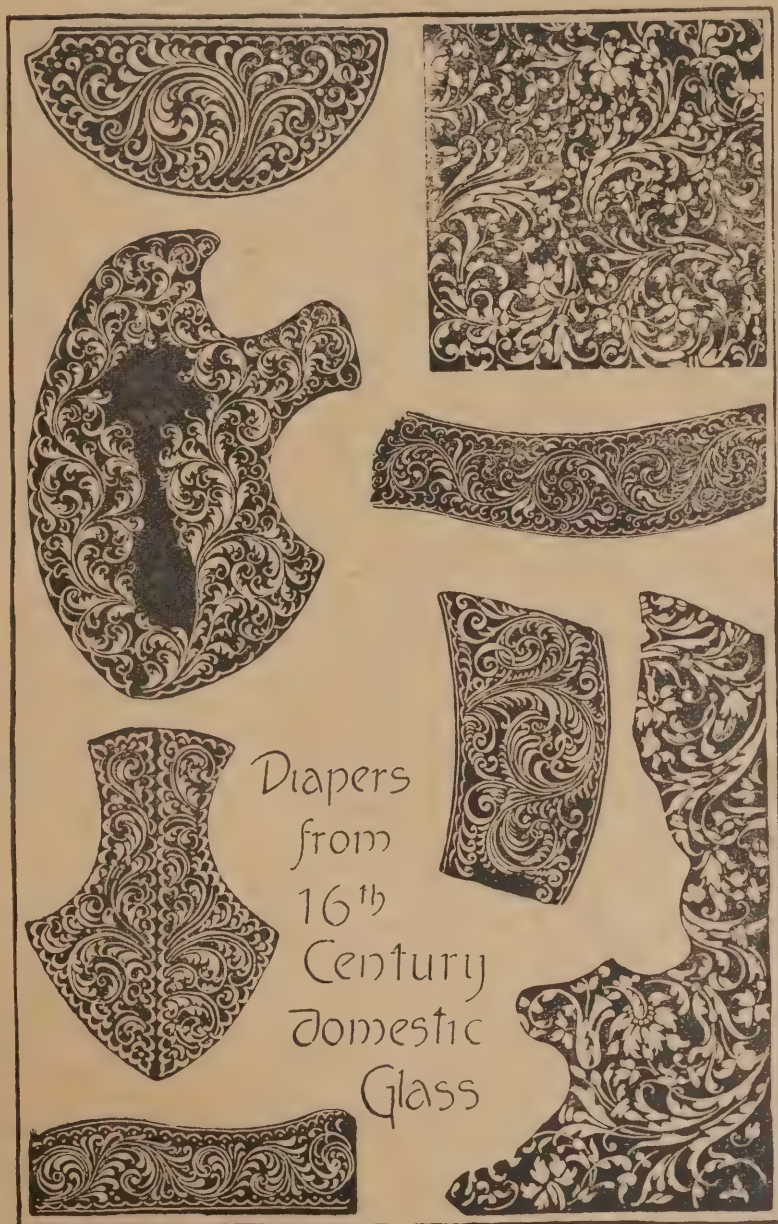 Diapers
from
16th
Century
domestic
Glass